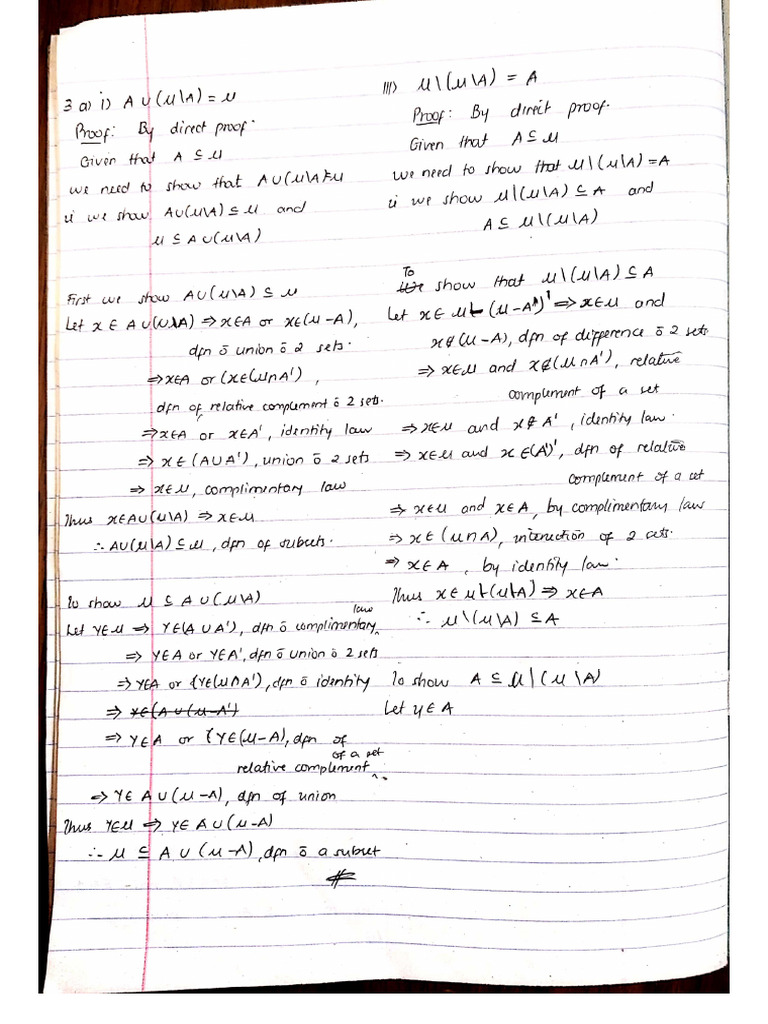 3 a) i) A ∪ (μ\A) = μ
Proof: By direct proof.
Given that A ⊆ μ
we need to show that A∪(μ\A)=μ
ii we show A∪(μ\A) ⊆ μ and
μ ⊆ A∪(μ\A)
First we show A∪(μ\A) ⊆ μ
Let x ∈ A∪(μ\A) ⇒ x∈A or x∈(μ-A),
dfn ō union ō 2 sets.
⇒x∈A or (x∈(μ∩A'),
dfn of relative complement ō 2 sets.
⇒x∈A or x∈A', identity law
⇒ x∈(A∪A'), union ō 2 sets
⇒ x∈μ, complimentary law
Thus x∈A∪(μ\A) ⇒ x∈μ
∴ A∪(μ\A) ⊆ μ, dfn of subsets.
To show μ ⊆ A∪(μ\A)
Let Y∈μ ⇒ Y∈(A∪A'), dfn ō complimentary law
⇒ Y∈A or Y∈A', dfn ō union ō 2 sets
⇒ Y∈A or (Y∈(μ∩A'), dfn ō identity
⇒ Y∈(A∪(μ-A')
⇒ Y∈A or (Y∈(μ-A), dfn of
relative complement of a set
⇒ Y∈ A∪(μ-A), dfn of union
Thus Y∈μ ⇒ Y∈A∪(μ-A)
∴ μ ⊆ A∪(μ-A), dfn ō a subset
#
III) μ\(μ\A) = A
Proof: By direct proof.
Given that A⊆μ
we need to show that μ\(μ\A)=A
ii we show μ\(μ\A) ⊆ A and
A ⊆ μ\(μ\A)
To show that μ\(μ\A) ⊆ A
Let x∈ μ-(μ-A')' ⇒ x∈μ and
x∉(μ-A), dfn of difference ō 2 sets
⇒ x∈μ and x∉(μ∩A'), relative
complement of a set
⇒ x∈μ and x∉A', identity law.
⇒ x∈μ and x∈(A')', dfn of relative
complement of a set
⇒ x∈μ and x∈A, by complimentary law
⇒ x∈(μ∩A), intersection of 2 sets.
⇒ x∈A, by identity law.
Thus x∈μ\(μ\A) ⇒ x∈A
∴ μ\(μ\A) ⊆ A
To show A ⊆ μ\(μ\A)
Let y∈A